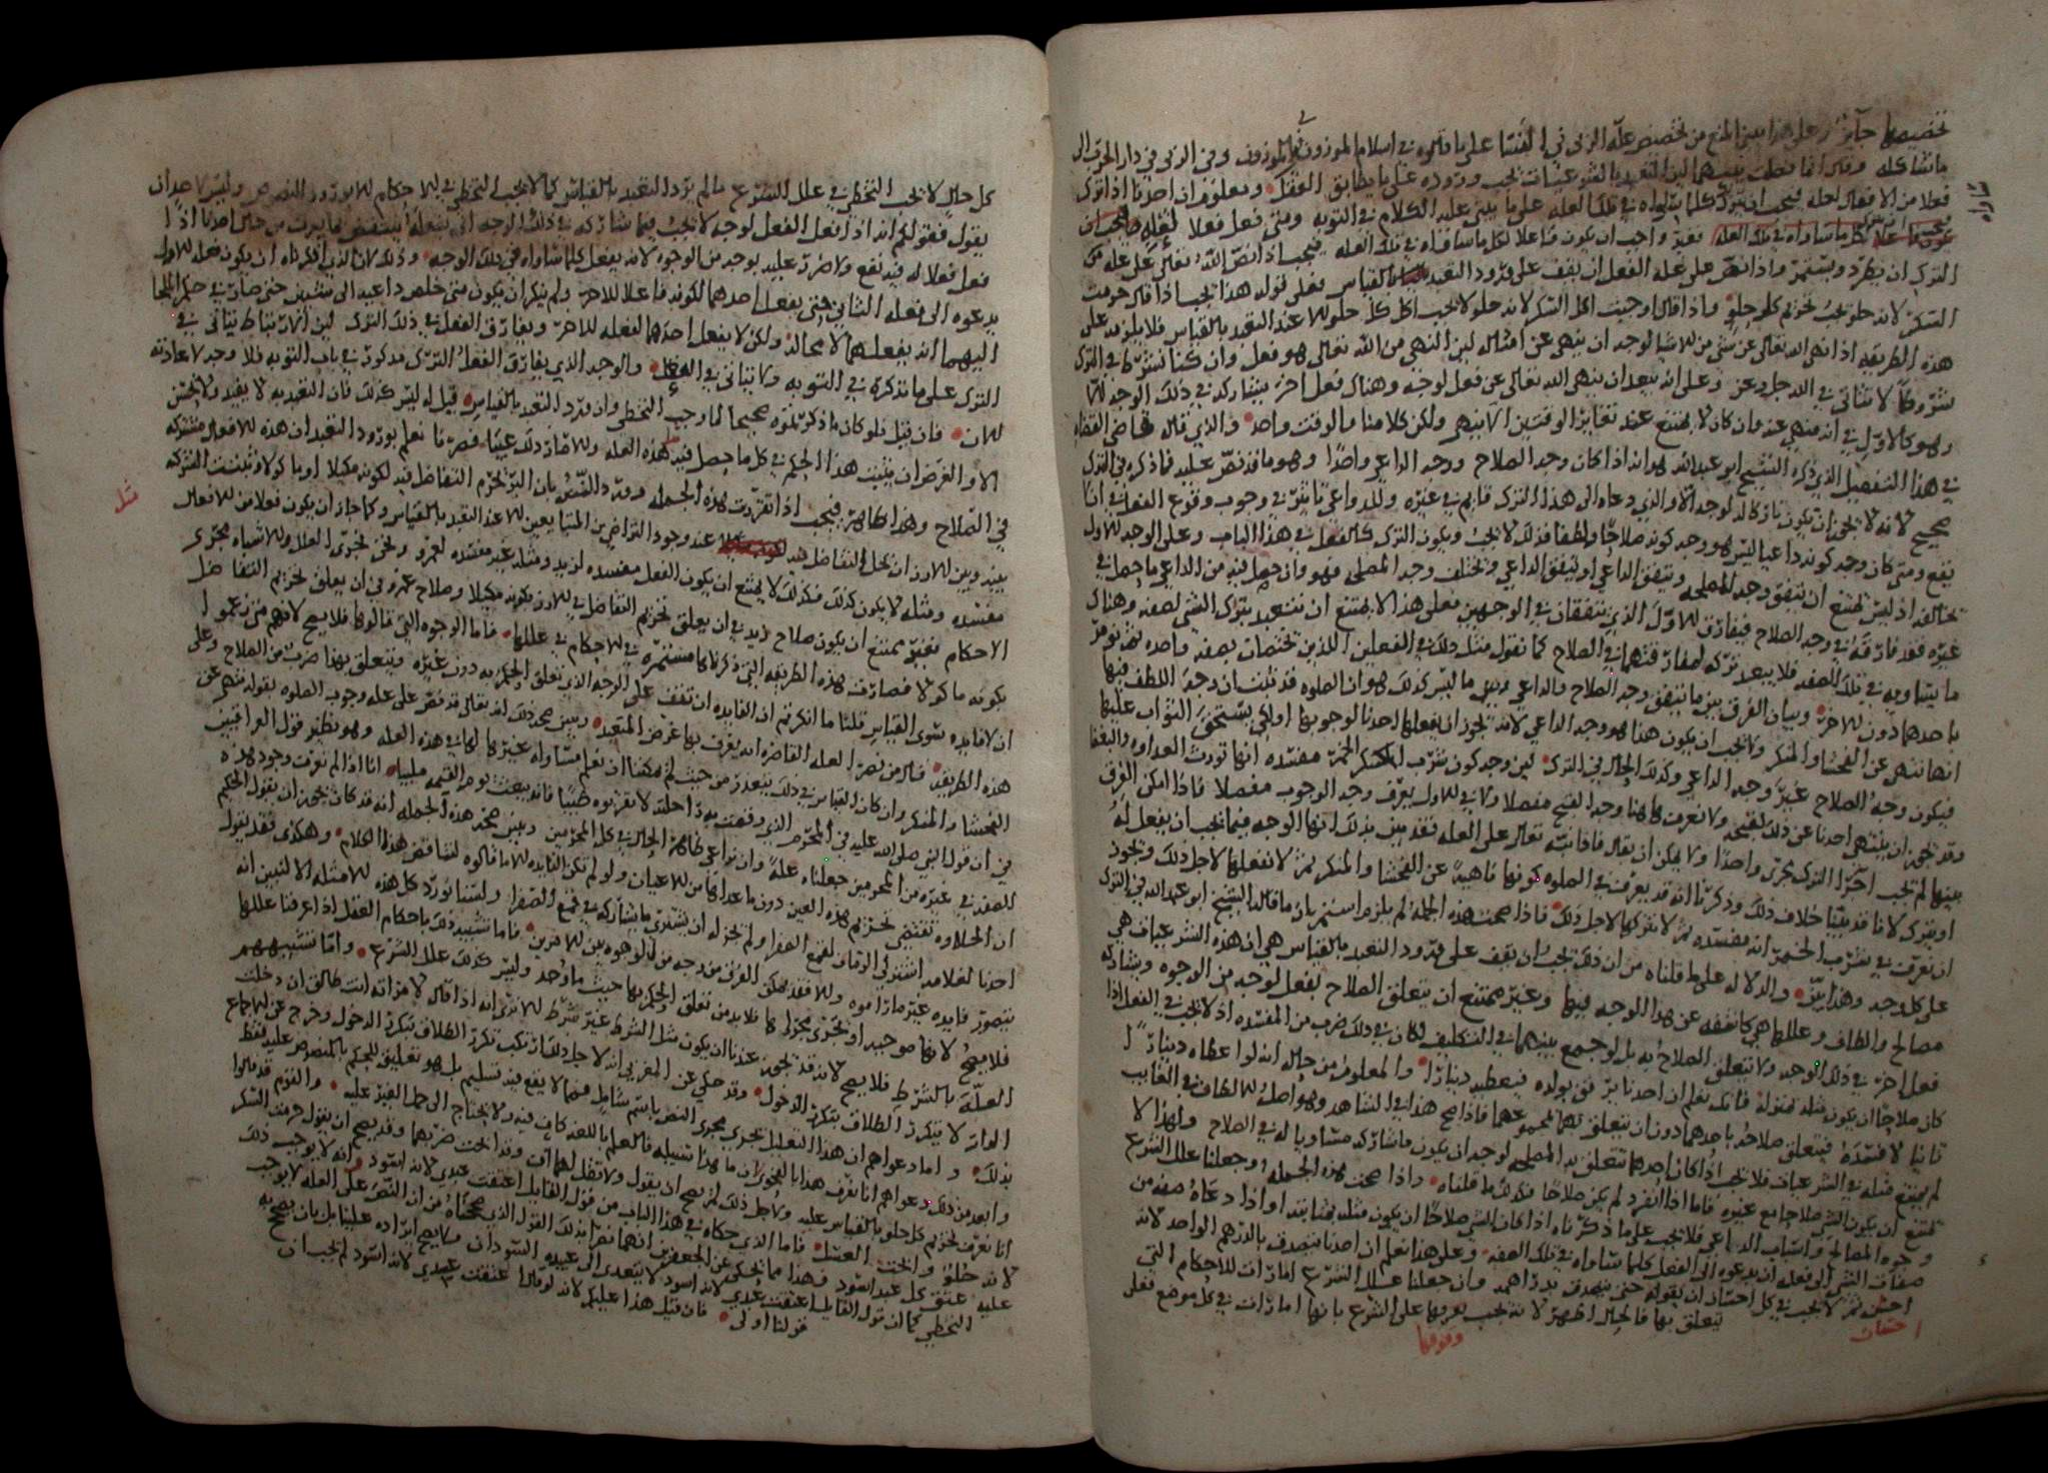 تخصيصها جائز وعلى هذا يبين المنع من تخصيص علة الربى في النسا على ما قلموه في اسلام الموزون في الموزون وفي الربى في دار الحرب الى
ما شاكله وقال انما فعلت بينهما لان التعبد بالشرعيات يجب وروده على ما يطابق العقل ومعلوم ان احدنا اذا ترك
فعلا من الافعال لعلة فيجب ان يترك كلما ساواه في تلك العلة على ما يبنى عليه الكلام في التوبة ومتى فعل فعلا لعلة
فغير واجب ان يكون فاعلا لكل ما ساواه في تلك العلة فيجب اذا نص الله تعالى على علة
الترك ان يطرد ويستمر واذا نص على علة الفعل ان يقف على ورود التعبد بالقياس فعلى قوله هذا يجب اذا قال حرمت
السكر لانه حلو يجب تحريم كل حلو واذا قال اوجبت اكل السكر لانه حلو لا يجب اكل كل حلو الا عند التعبد بالقياس فلا يلزمه على
هذه الطريقة اذا نهى الله تعالى عن شي من الاشيا لوجه ان ينهى عن امثاله لان النهي من الله تعالى هو فعل وان كنا نشترط في الترك
شروطا لا تتاتى في الله جل وعز وعلى انه يبعد ان ينهى الله تعالى عن فعل لوجه وهناك فعل اخر يشاركه في ذلك الوجه الا
وهو كالاول في انه منهي عنه وان كان لا يمتنع عند تغاير الوقتين الا ينهى ولكن كلامنا والوقت واحد والذي قاله قاضي القضاة
في هذا التفصيل الذي ذكره الشيخ ابو عبدالله هو انه اذا كان وجه الصلاح ووجه الداعي واحدا وهو ما قد نص عليه فما ذكره في الترك
صحيح لانه لا يجوز ان يكون تاركا له لوجه الا والذي دعاه الى هذا الترك قايم في غيره وللدواعي تاثير في وجوب وقوع الفعل
يقع ومتى كان وجه كونه داعيا ليس هو وجه كونه صلاحا ولطفا فذلك لا يجب ويكون الترك كالفعل في هذا الباب وعلى الوجه الاول
تخالفه اذ ليس يمتنع ان يتفق وجه المصلحة ويتفق الداعي او يتفق الداعي ويختلف وجه المصلحة فهو وان حصل فيه من الداعي ما حصل في
غيره فقد فارقه في وجه الصلاح فيفارق الاول الذين يتفقان في الوجهين فعلى هذا لا يمتنع ان يتعبد بترك الشي لصفة وهناك
ما يساويه في تلك الصفة فلا يبعد تركه لمفارقتهما في الصلاح كما نقول مثل ذلك في الفعلين اللذين تختصان بصفة واحدة ثم نومر
باحدهما دون الاخر وبيان الفرق بين ما يتفق وجه الصلاح والداعي وبين ما ليس كذلك هو ان الصلوة قد ثبت ان وجه اللطف فيها
انها تنهى عن الفحشا والمنكر ولا يجب ان يكون هذا هو وجه الداعي لانه يجوز ان يفعلها احدنا لوجوبها او لكي يستحق الثواب عليها
فيكون وجه الصلاح غير وجه الداعي وكذلك الحال في الترك لان وجه كون شرب الخمر مفسدة انها تورث العداوة والبغضا
وقد يجوز ان ينتهي احدنا عن ذلك لقبحه ولا نعرف هاهنا وجه القبح مفصلا ولا في الاول يعرف وجه الوجوب مفصلا فاذا امكن الفرق
بينهما لم يجب اجرا الترك مجرى واحدا ولا يمكن ان يقال فاذا نبه تعالى على العلة فقد بين بذلك انها الوجه فيما يجب ان يفعل له
او يترك لانا قد بينا خلاف ذلك وذكرنا انه قد يعرف في الصلوة كونها ناهية عن الفحشا والمنكر ثم لا نفعلها لاجل ذلك ويجوز
ان نعرف في شرب الخمر انه مفسدة ثم لا نتركها لاجل ذلك فاذا صحت هذه الجملة لم يلزم استمرار ما قاله الشيخ ابو عبدالله في الترك
على كل وجه وهذا بين والدلالة على ما قلناه من ان ذلك يجب ان يقف على ورود التعبد بالقياس هي ان هذه الشرعيات هي
مصالح والطاف وعللها هي كاشفة عن هذا الوجه فيها وغير ممتنع ان يتعلق الصلاح بفعل لوجه من الوجوه ويشاركه
فعل اخر في ذلك الوجه ولا يتعلق الصلاح به بل لو جمع بينهما في التكليف لكان في ذلك ضرب من المفسدة اذ لا يجب في الفعل اذا
كان صلاحا ان يكون مثله بمنزلته فانك تعلم ان احدنا يرفق بولده فيعطيه دينارا والمعلوم من حاله انه لو اعطاه دينارا
ثانيا لافسده فيتعلق صلاحه باحدهما دون ان يتعلق بهما بمجموعهما فاذا صح هذا في الشاهد وهو اصل الالطاف في الغايب
لم يمتنع مثله في الشرعيات فلا يجب اذا كان احدهما تتعلق به المصلحة لوجه ان يكون ما شاركه مساويا له في الصلاح ولهذا لا
يمتنع ان يكون الشي صلاحا مع غيره فاما اذا انفرد لم يكن صلاحا فكذلك ما قلناه واذا صحت هذه الجملة وجعلنا علل الشرع
وجوه المصالح واسباب الدواعي فلا يجب على ما ذكرناه اذا كان الشي صلاحا ان يكون مثله بمثابته او اذا دعاه صفة من
صفات الشي الى فعله ان يدعوه الى الفعل كلما ساواه في تلك الصفة وعلى هذا نعلم ان احدنا يتصدق بالدرهم الواحد لانه
احسان ثم لا يجب في كل احسان ان يفعله حتى يتصدق بدراهمه وان جعلنا علل الشرع امارات للاحكام التي
يتعلق بها فالحال اظهر لانه يجب تعرفها على الشرع بانها امارات في كل موضع فعلى
كل حال لا يجب التخطي في علل الشرع ما لم يرد التعبد بالقياس كما لا يجب التخطي في الاحكام الا بورود النصوص وليس لاحد ان
يقول فقولكم انه اذا فعل الفعل لوجه لا يجب فيما شاركه في ذلك الوجه ان يفعله ينتقض بما يعرف من حال احدنا اذا
فعل فعلا له فيه نفع ولا ضرر عليه بوجه من الوجوه لانه يفعل كلما ساواه في ذلك الوجه وذلك لان الذي انكرناه ان يكون فعله للاول
يدعوه الى فعله الثاني حتى يفعل احدهما لكونه فاعلا للاخر ولم ننكر ان يكون متى خلص داعيه الى شيئين حتى صار في حكم الملجا
اليهما انه يفعلهما لا محالة ولكن لا يفعل احدهما لفعله للاخر ويفارق الفعل في ذلك الترك لان الارتباط يتاتى في
الترك على ما نذكره في التوبة ولا يتاتى في الفعل والوجه الذي يفارق الفعل الترك مذكور في باب التوبة فلا وجه لاعادته
الان فان قيل فلو كان ما ذكرتموه صحيحا لما وجب التخطي وان ورد التعبد بالقياس قيل له ليس كذلك فان التعبد به لا يفيد ولا يحسن
الا والغرض ان يثبت هذا الحكم في كل ما حصل فيه هذه العلة والا صار ذلك عبثا فصرنا نعلم بورود التعبد ان هذه الافعال مشتركة
في الصلاح وهذا ظاهر فيجب اذا تقررت هذه الجملة وورد النص بان البر يحرم التفاضل فيه لكونه مكيلا او ماكولا وثبتت الشركة
بينه وبين الارز ان يحل التفاضل فيه عند وجود التراضي من المتبايعين الا عند التعبد بالقياس وكما جاز ان يكون فعلا من الافعال
مفسدة ومثله لا يكون كذلك فكذلك لا يمتنع ان يكون الفعل مفسدة لزيد ومثله غير مفسدة لعمرو ونحن نجري العلل والاشباه مجرى
الاحكام فغير ممتنع ان يكون صلاح زيد في ان يعلق تحريم التفاضل في الارز بكونه مكيلا وصلاح عمرو في ان يعلق تحريم التفاضل
بكونه ماكولا فصارت هذه الطريقة التي ذكرناها مستمرة في الاحكام في عللها فاما الوجوه التي قالوها فلا يصح لانهم متى زعموا
ان لا فايدة سوى القياس قلنا ما انكرتم ان الفايدة ان نقف على الوجه الذي تعلق الحكم به دون غيره ويتعلق بهذا ضرب من الصلاح وعلى
هذه الطريقة قال من نصر العلة القاصرة انه يعرف بها غرض المتعبد ويبين صحة ذلك انه تعالى قد نص على علة وجوب الصلوة بقوله تنهى عن
الفحشا والمنكر وان كان القياس في ذلك يتعذر من حيث لم يمكنا ان نعلم مساواة غيرها لها في هذه العلة وهو نظير قول العراقيين
في ان قول النبي صلى الله عليه في المحرم الذي وقصت به راحلته لا تقربوه طيبا فانه يبعث يوم القيمة ملبيا انا اذا لم نعرف وجود هذه
الصفة في غيره من المحرمين جعلناه علة وان نراعي ظاهر الحال في كل المحرمين ويبين صحة هذه الجملة انه قد كان يجوز ان يقول الحكيم
ان الحلاوة تقتضي تحريم هذه العين دون ما عداها من الاعيان ولو لم تكن الفايدة الا ما قالوه لتناقض هذا الكلام وهكذى فقد يقول
احدنا لغلامه اشتر لي الرمان لقمع الصفرا ولم يجز له ان يشتري ما يشاركه في قمع الصفرا ولسنا نورد كل هذه الامثلة الا لنبين انه
يتصور فايدة غير ما راموه والا فقد يمكن الفرق من وجه من الوجوه بين الامرين فاما تشبيه ذلك باحكام العقل اذا عرفنا عللها
فلا يصح لانها موجبة او تجري مجراها فلا بد من تعلق الحكم بها حيث ما وجد وليس كذلك علل الشرع واما تشبيههم
العلة بالشرط فلا يصح لانه قد يجوز عندنا ان يكون مثل الشرط غير شرط الا ترى انه اذا قال لامراته انت طالق ان دخلت
الدار لا يتكرر الطلاق بتكرر الدخول وقد حكي عن المغربي انه لاجل ذلك ارتكب تكرر الطلاق بتكرر الدخول وخرج عن الاجماع
بذلك واما دعواهم ان هذا التعليل يجري مجرى النص باسم شامل فمما لا يقع فيه تسليم بل هو تعليق للحكم بالمنصوص عليه فقط
وابعد من ذلك دعواهم انا نعرف هذا بالفحوى لان ما هذا سبيله فالعلم باللغة كاف فيه ولا يحتاج الى حمل الغير عليه والقوم قد قالوا
انا نعرف تحريم كل حلو بالقياس عليه ولاجل ذلك لم يصح ان يقول ولا تقل لهما اف وقد ابحت ضربهما وقد يصح ان يقول حرمت السكر
لانه حلو وابحت العسل فاما الذي حكاه في هذا الباب من قول القايل اعتقت عبدي لانه اسود وانه لا يوجب ذلك
عليه عتق كل عبد اسود فهذا مما يحكى عن الجعفرين انهما نصرا بذلك القول الذي صححناه من ان النص على العلة لا يوجب
التخطي كما ان قول القايل اعتقت عبدي لانه اسود لا يتعدى الى عبيده السودان ولا يصح ايراده علينا بل بان يصحح به
قولنا اولى فان قيل هذا عليكم لانه لو قال اعتقت عبيدي لانه اسود لم يجب ان